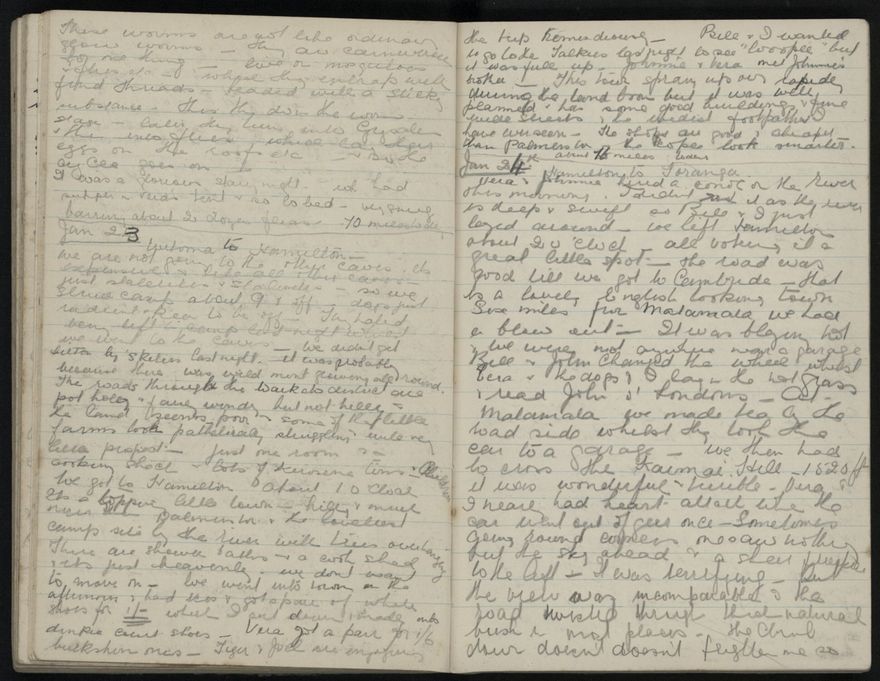 These worms are not like ordinary
glow worms — they are carnivorous
for one thing — live on mosquitoes
which they entrap with
fine threads — beaded with a sticky
substance. This they do in the worm
stage — later they turn into
then into flies which lay their
eggs on the roof etc & so the
goes on
It was a glorious starry night. We had
supper & was tent & so to bed —
barring about 2 dozen fleas 70 miles
Jan 23
to Hamilton —
We are not going to the other caves. its
expensive & like all other caves —
just stalactites & — so we
struck camp about 9 & off — dogs just
radiant to be off. They hated
being left in camp last night whilst
we went to the caves — We didn't get
bitten by skeeters last night. it was probably
because there was wild mint growing all round.
The roads through the Waikato district are
pot holey & windy but not hilly —
the land seems poor & some of the little
farms look pathetically struggling with very
little profit — just one room & a
cooking shack — lots of kerosene tins
We got to Hamilton about 1 o clock
Its a topping little town — hilly & much
nicer than Palmerston & the loveliest
camp site by the river with trees overhanging
There are shower baths — & a cook shed
& its just heavenly — we dont want
to move on — We went into town in the
afternoon & had tea & got a pair of white
shoes for 1/- which I cut down & made into
dinkie court shoes — Vera got a pair for 1/6
buckskin ones — Tiger & Joel are enjoying
the trip tremendously — Bill & I wanted
to go to the Talkies last night to see "Whoopee" but
it was full up — Johnnie & Vera met Johnnie's
— This town sprang up very rapidly
during the land boom but it was well
planned & has some good buildings & fine
wide streets & the widest footpaths I
have ever seen — The shops are good & cheaper
than Palmerston & the look smarter.
Jan 24th about 73 miles
Hamilton to Toranga
Vera & Johnnie hired a canoe on the river
this morning. I didn't it as the river
is deep & swift so Bill & I just
lazed around — we left Hamilton
about 2 o'clock — all voting it a
great little spot — the road was
good till we got to Cambridge — that
is a lovely English looking town
Six miles from Matamata we had
a blow out — It was blazing hot
& we were not anywhere near a garage
Bill & John changed the wheel whilst
Vera & the dogs & I lay in the hot grass
& read John o' Londons — At
Matamata we made tea by the
road side whilst they took the
car to a garage — we then had
to cross the Kaimai Hill — 1520 ft
it was wonderful & terrible — Vera &
I nearly had heart attack when the
car went out of gear once — Sometimes
going round corners one saw nothing
but the sky ahead & a sheer precipice
to the left — it was terrifying — but
the view was incomparable & the
road wound through thick natural
bush in most places — the climb
down doesn't doesn't frighten me so